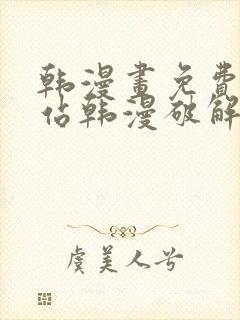 韩漫画免费
佔韩漫破解
虞美人兮